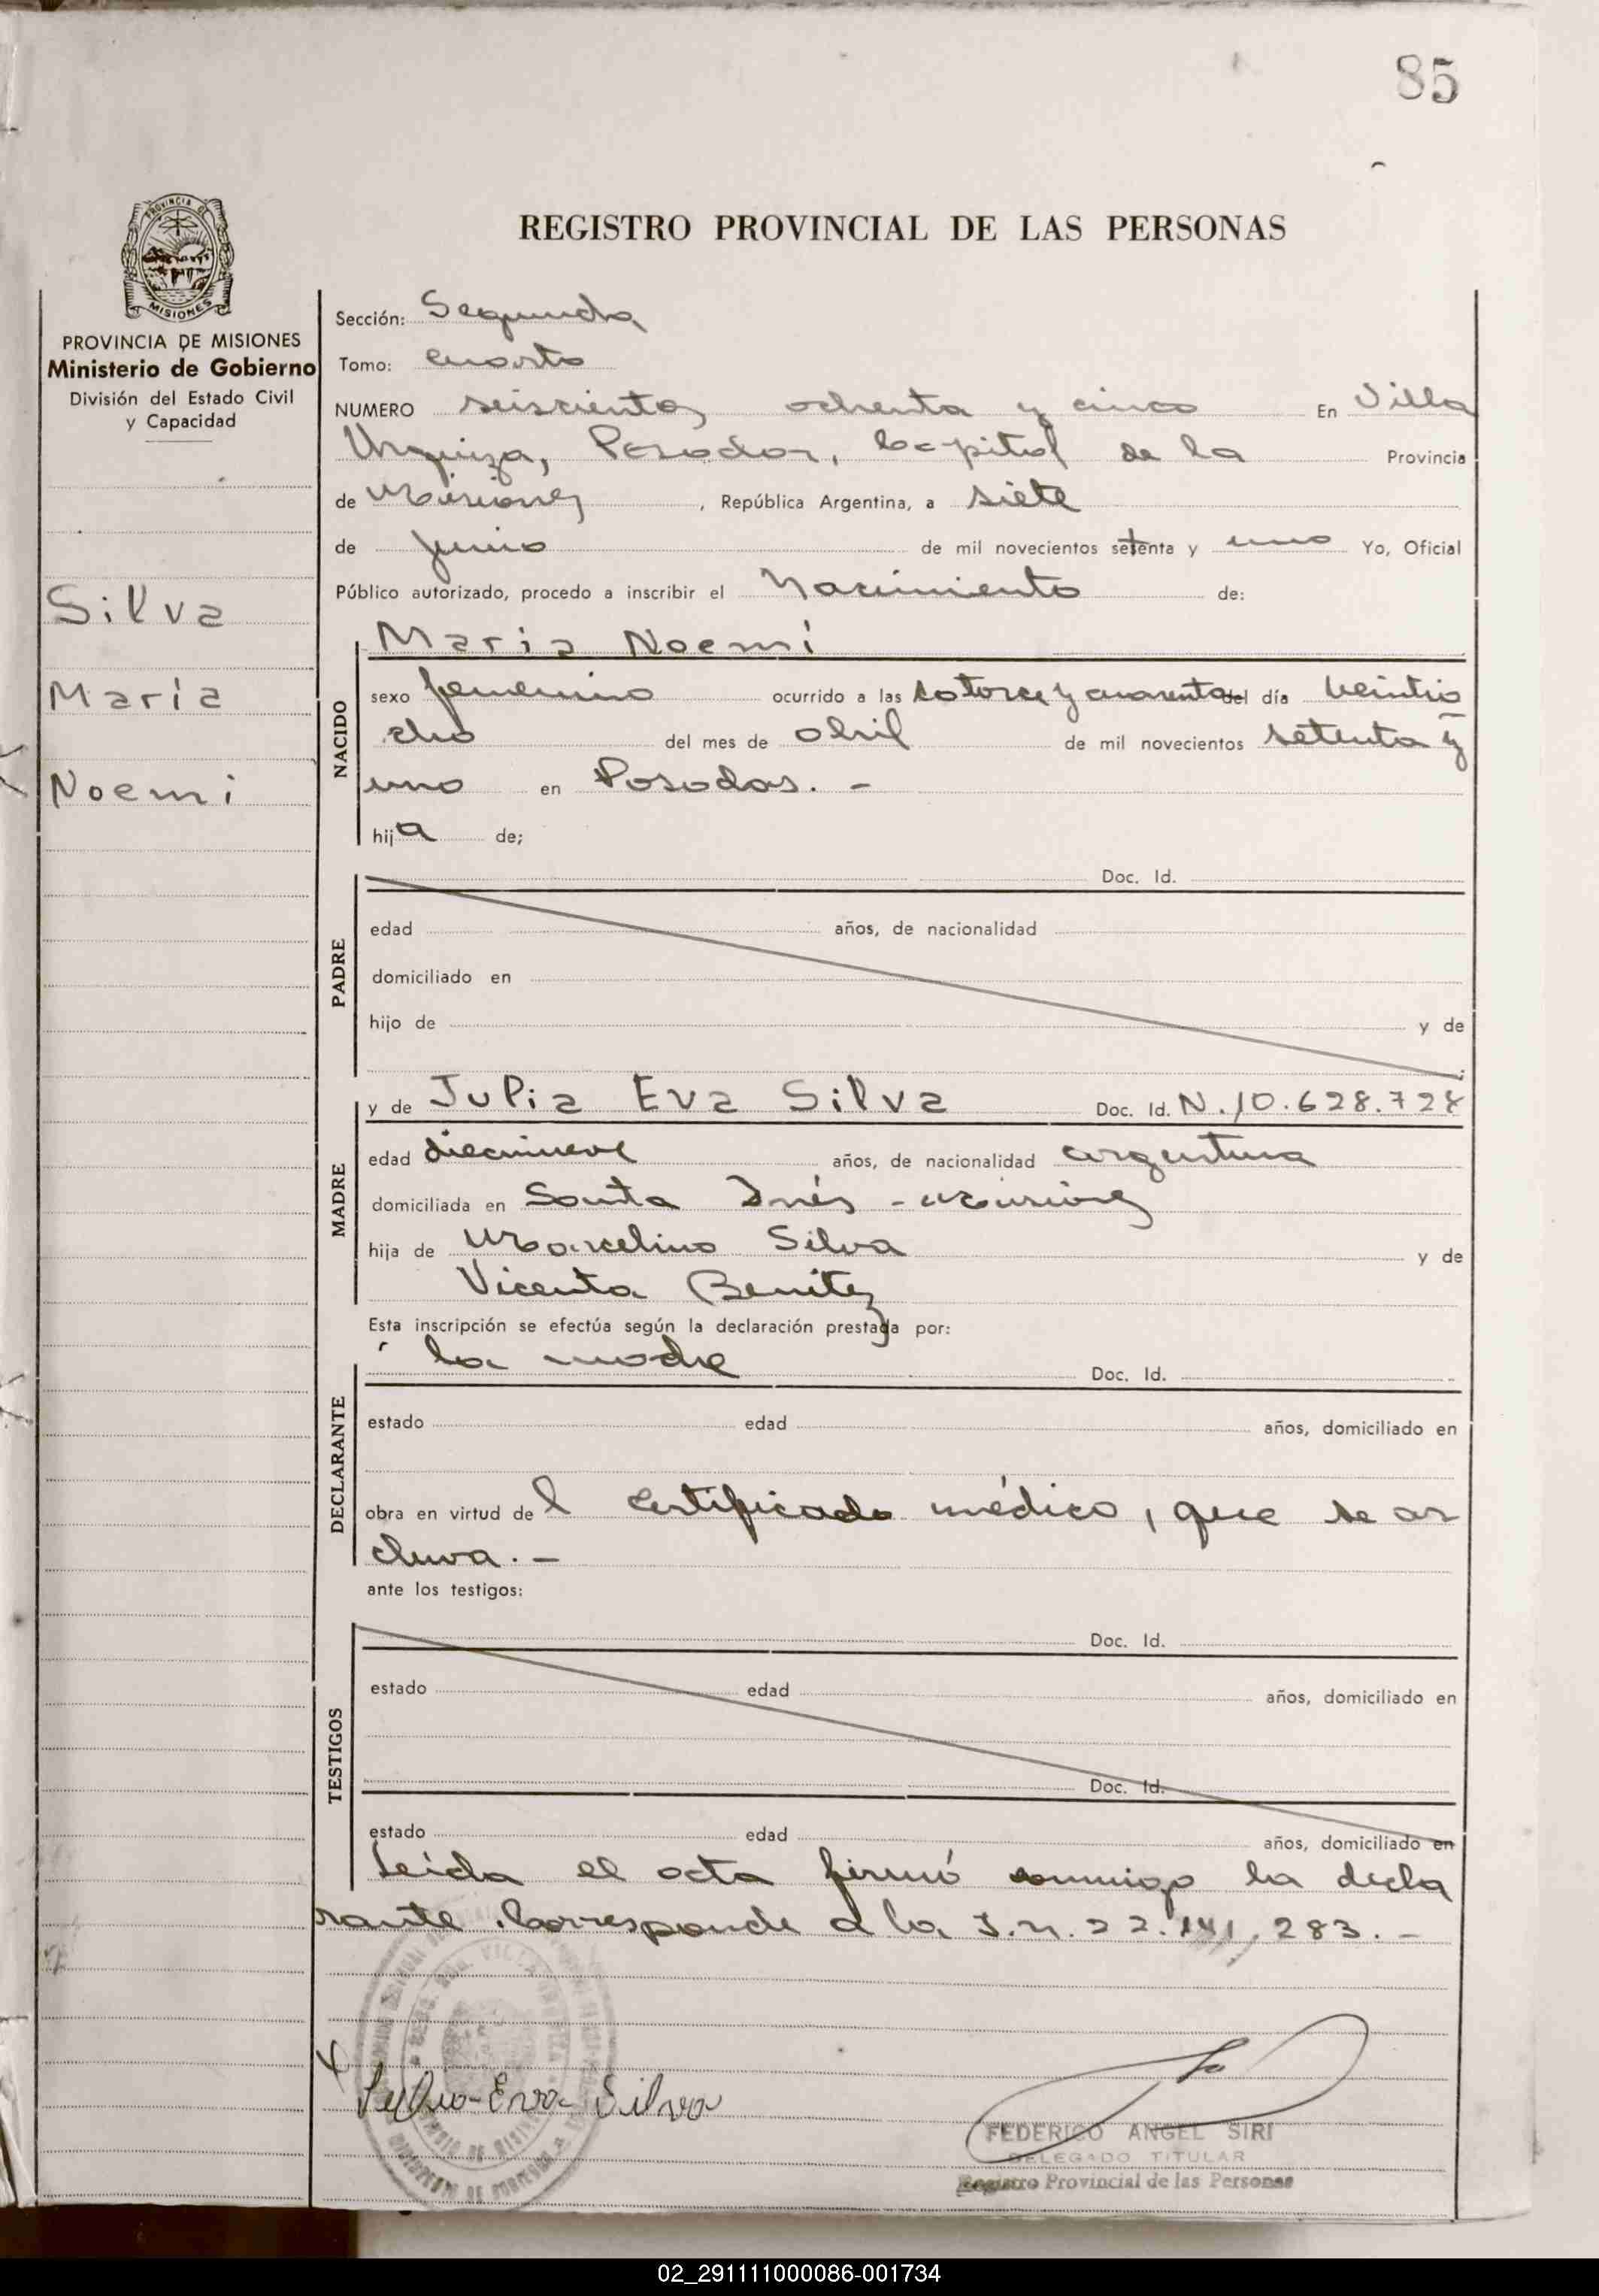 85
REGISTRO PROVINCIAL DE LAS PERSONAS
PROVINCIA DE MISIONES
PROVINCIA DE MISIONES
Ministerio de Gobierno
División del Estado Civil
y Capacidad
Silva
María
Noemí
Sección: Segunda
Tomo: cuarto
NUMERO seiscientos ochenta y cinco En Villa
Urquiza, Posadas, Capital de la Provincia
de Misiones, República Argentina, a siete
de junio de mil novecientos setenta y uno Yo, Oficial
Público autorizado, procedo a inscribir el Nacimiento de:
NACIDO
María Noemí
sexo femenino ocurrido a las catorce y cuarenta del día veintio
cho del mes de abril de mil novecientos setenta y
uno en Posadas. -
hija de;
PADRE
Doc. Id.
edad años, de nacionalidad
domiciliado en
hijo de y de
MADRE
y de Julia Eva Silva Doc. Id. N. 10.628.728
edad diecinueve años, de nacionalidad argentina
domiciliada en Santa Inés - Misiones
hija de Marcelino Silva y de
Vicenta Benitez
Esta inscripción se efectúa según la declaración prestada por:
DECLARANTE
la madre Doc. Id.
estado edad años, domiciliado en
obra en virtud del certificado médico, que se ar
chiva. -
ante los testigos:
TESTIGOS
Doc. Id.
estado edad años, domiciliado en
Doc. Id.
estado edad años, domiciliado en
Leída el acta firmó conmigo la decla
rante. Corresponde a la I.N. 22.141,283. -
Julia-Eva Silva
FEDERICO ANGEL SIRI
DELEGADO TITULAR
Registro Provincial de las Personas
02_291111000086-001734